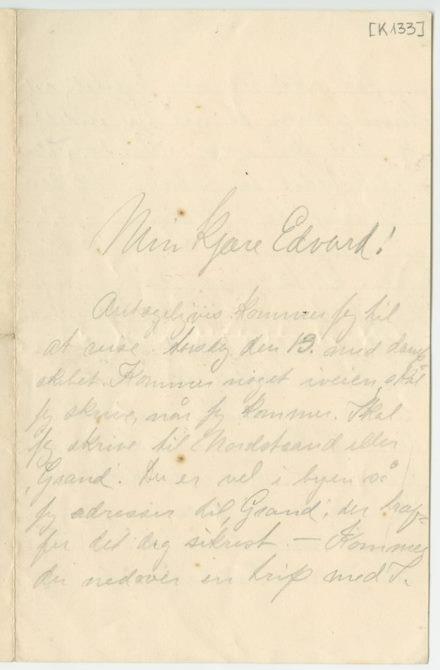 [K133]
Min Kjære Edvard!
Antageligvis kommer jeg til
at reise torsdag den 13. med damp
skibet. Kommer noget iveien, skal
jeg skrive, når jeg kommer. Skal
jeg skrive til Nordstrand eller
'Grand'. Du er vel i byen så
jeg adresser til 'Grand', der træf-
fer det dig sikrest. — Kommer
du nedover en trip med S.